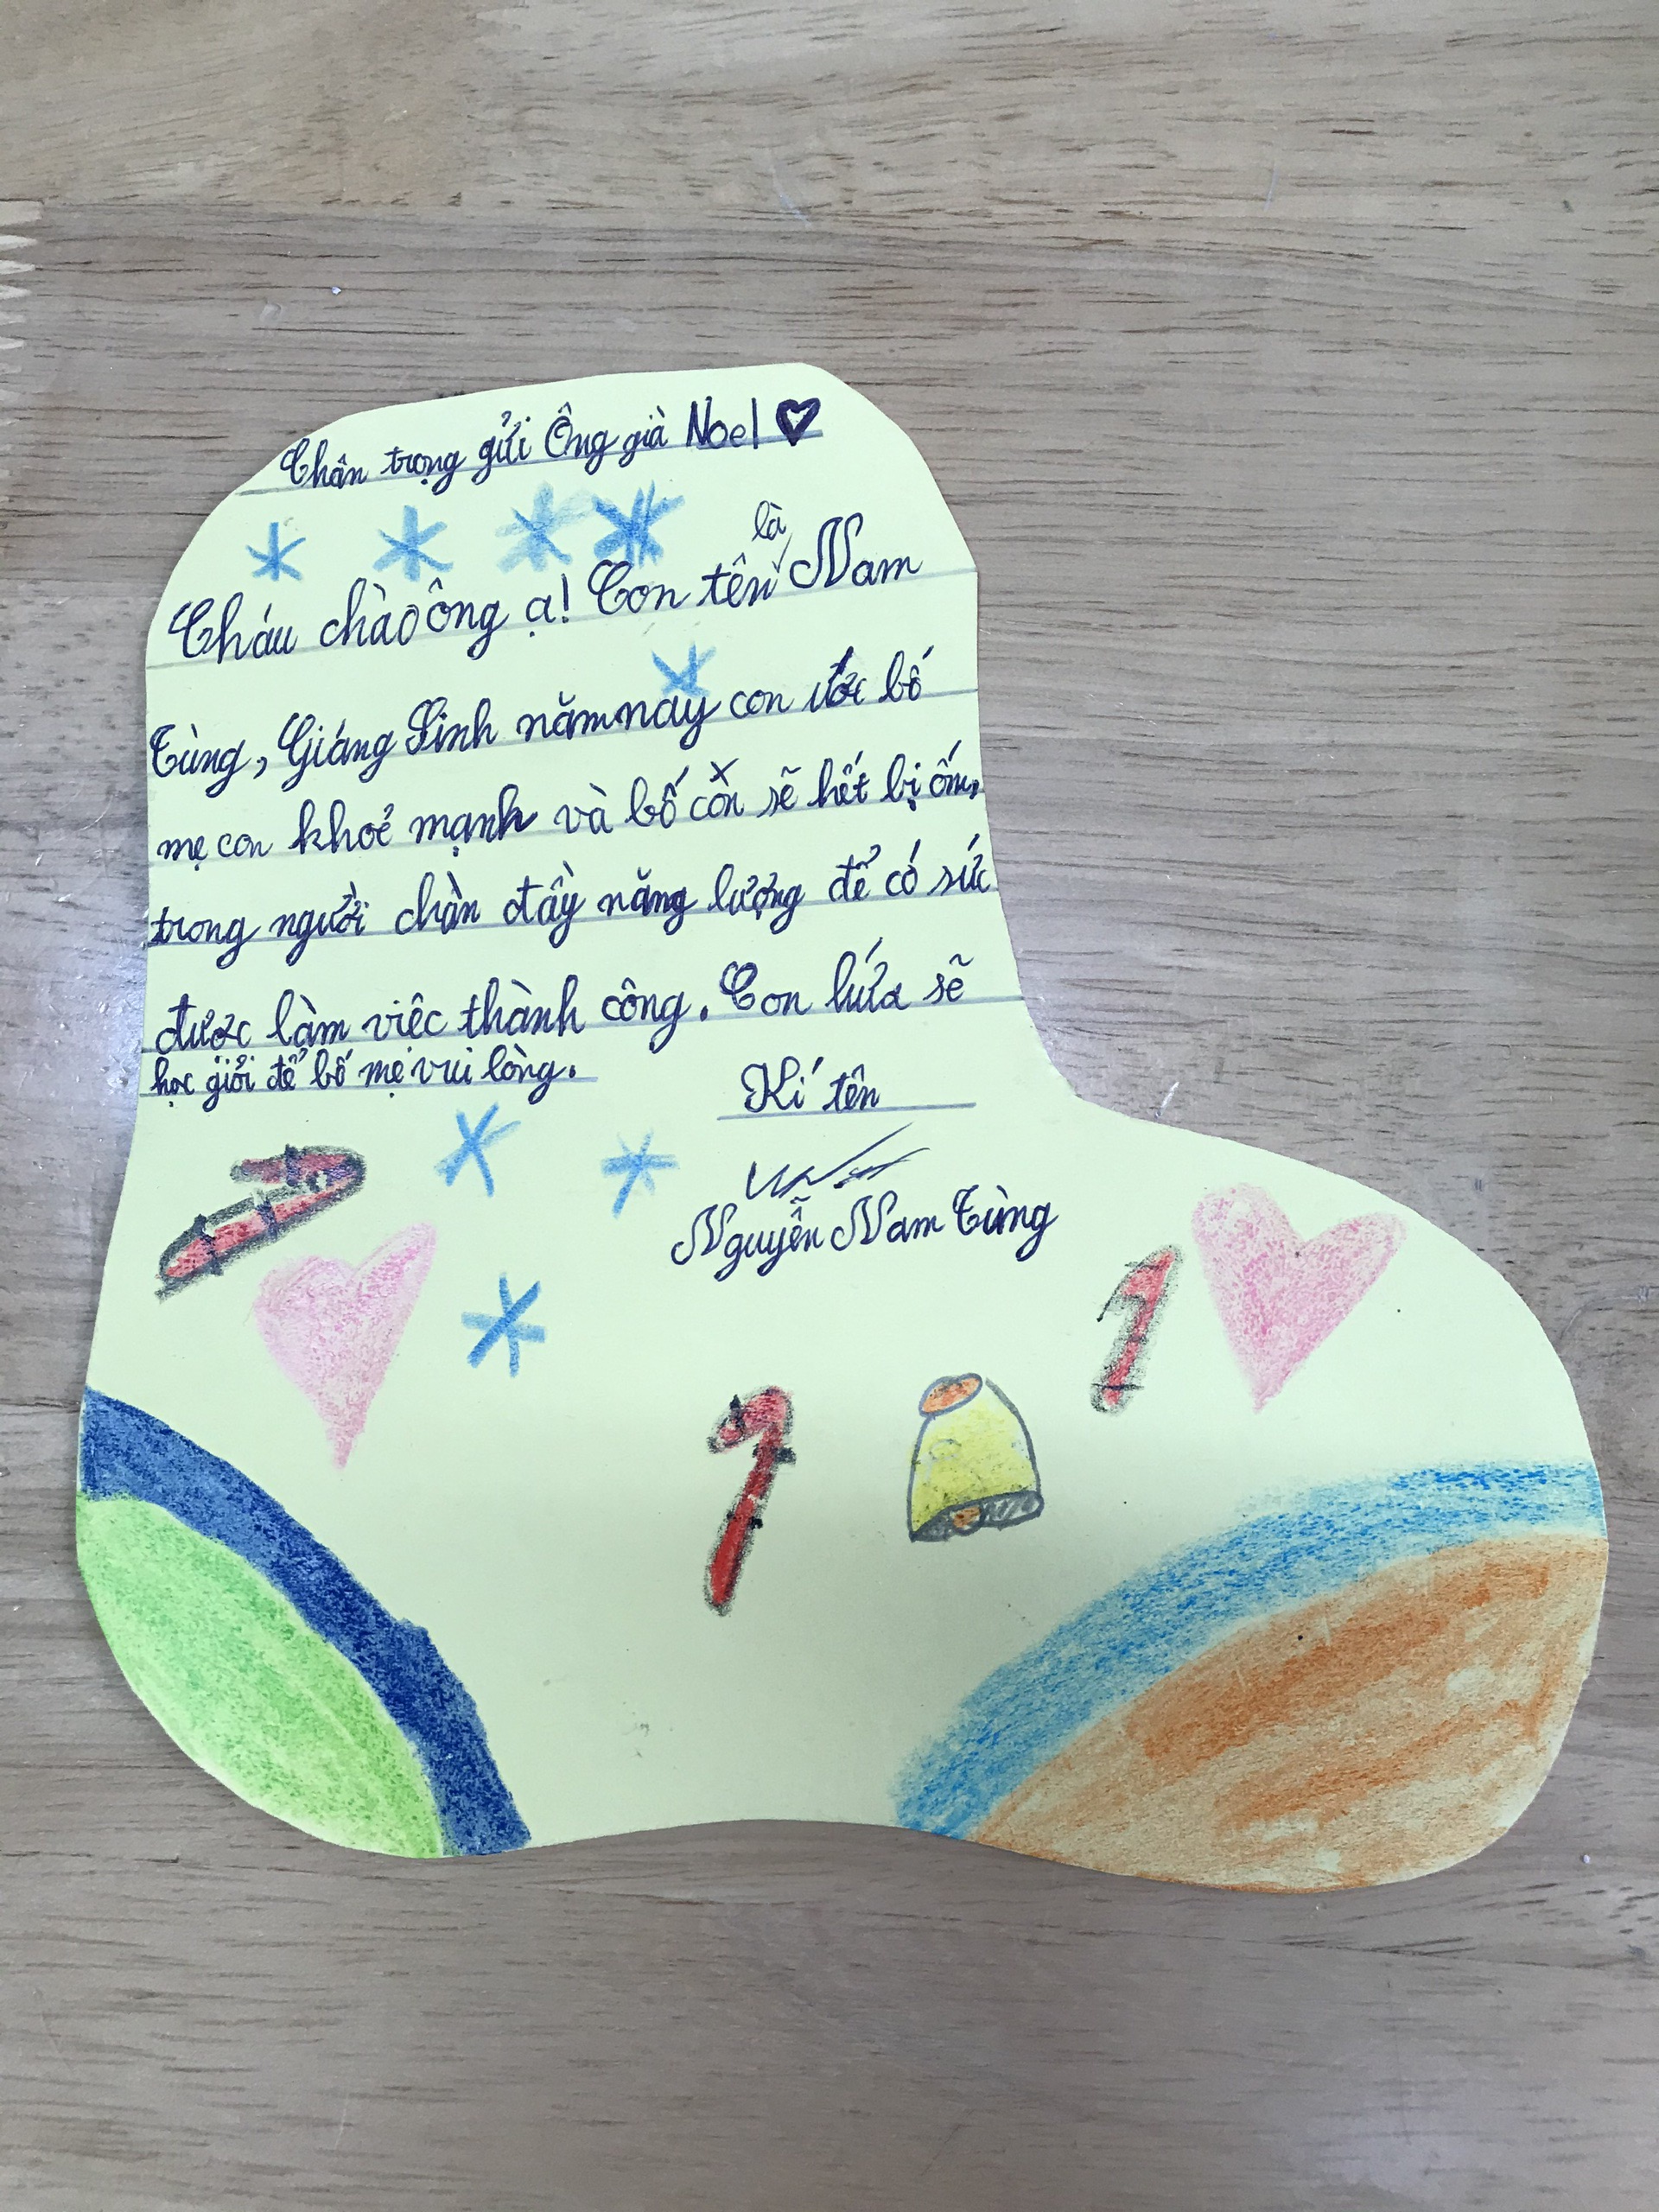 Chân trọng gửi Ông già Noel
Cháu chào ông ạ! Con tên là Nam
Tùng, Giáng Sinh năm nay con ước bố
mẹ con khoẻ mạnh và bố còn sẽ hết bị ốm,
trong người chàn đầy năng lượng để có sức
được làm việc thành công. Con hứa sẽ
học giỏi để bố mẹ vui lòng.
Kí tên
Nguyễn Nam Tùng